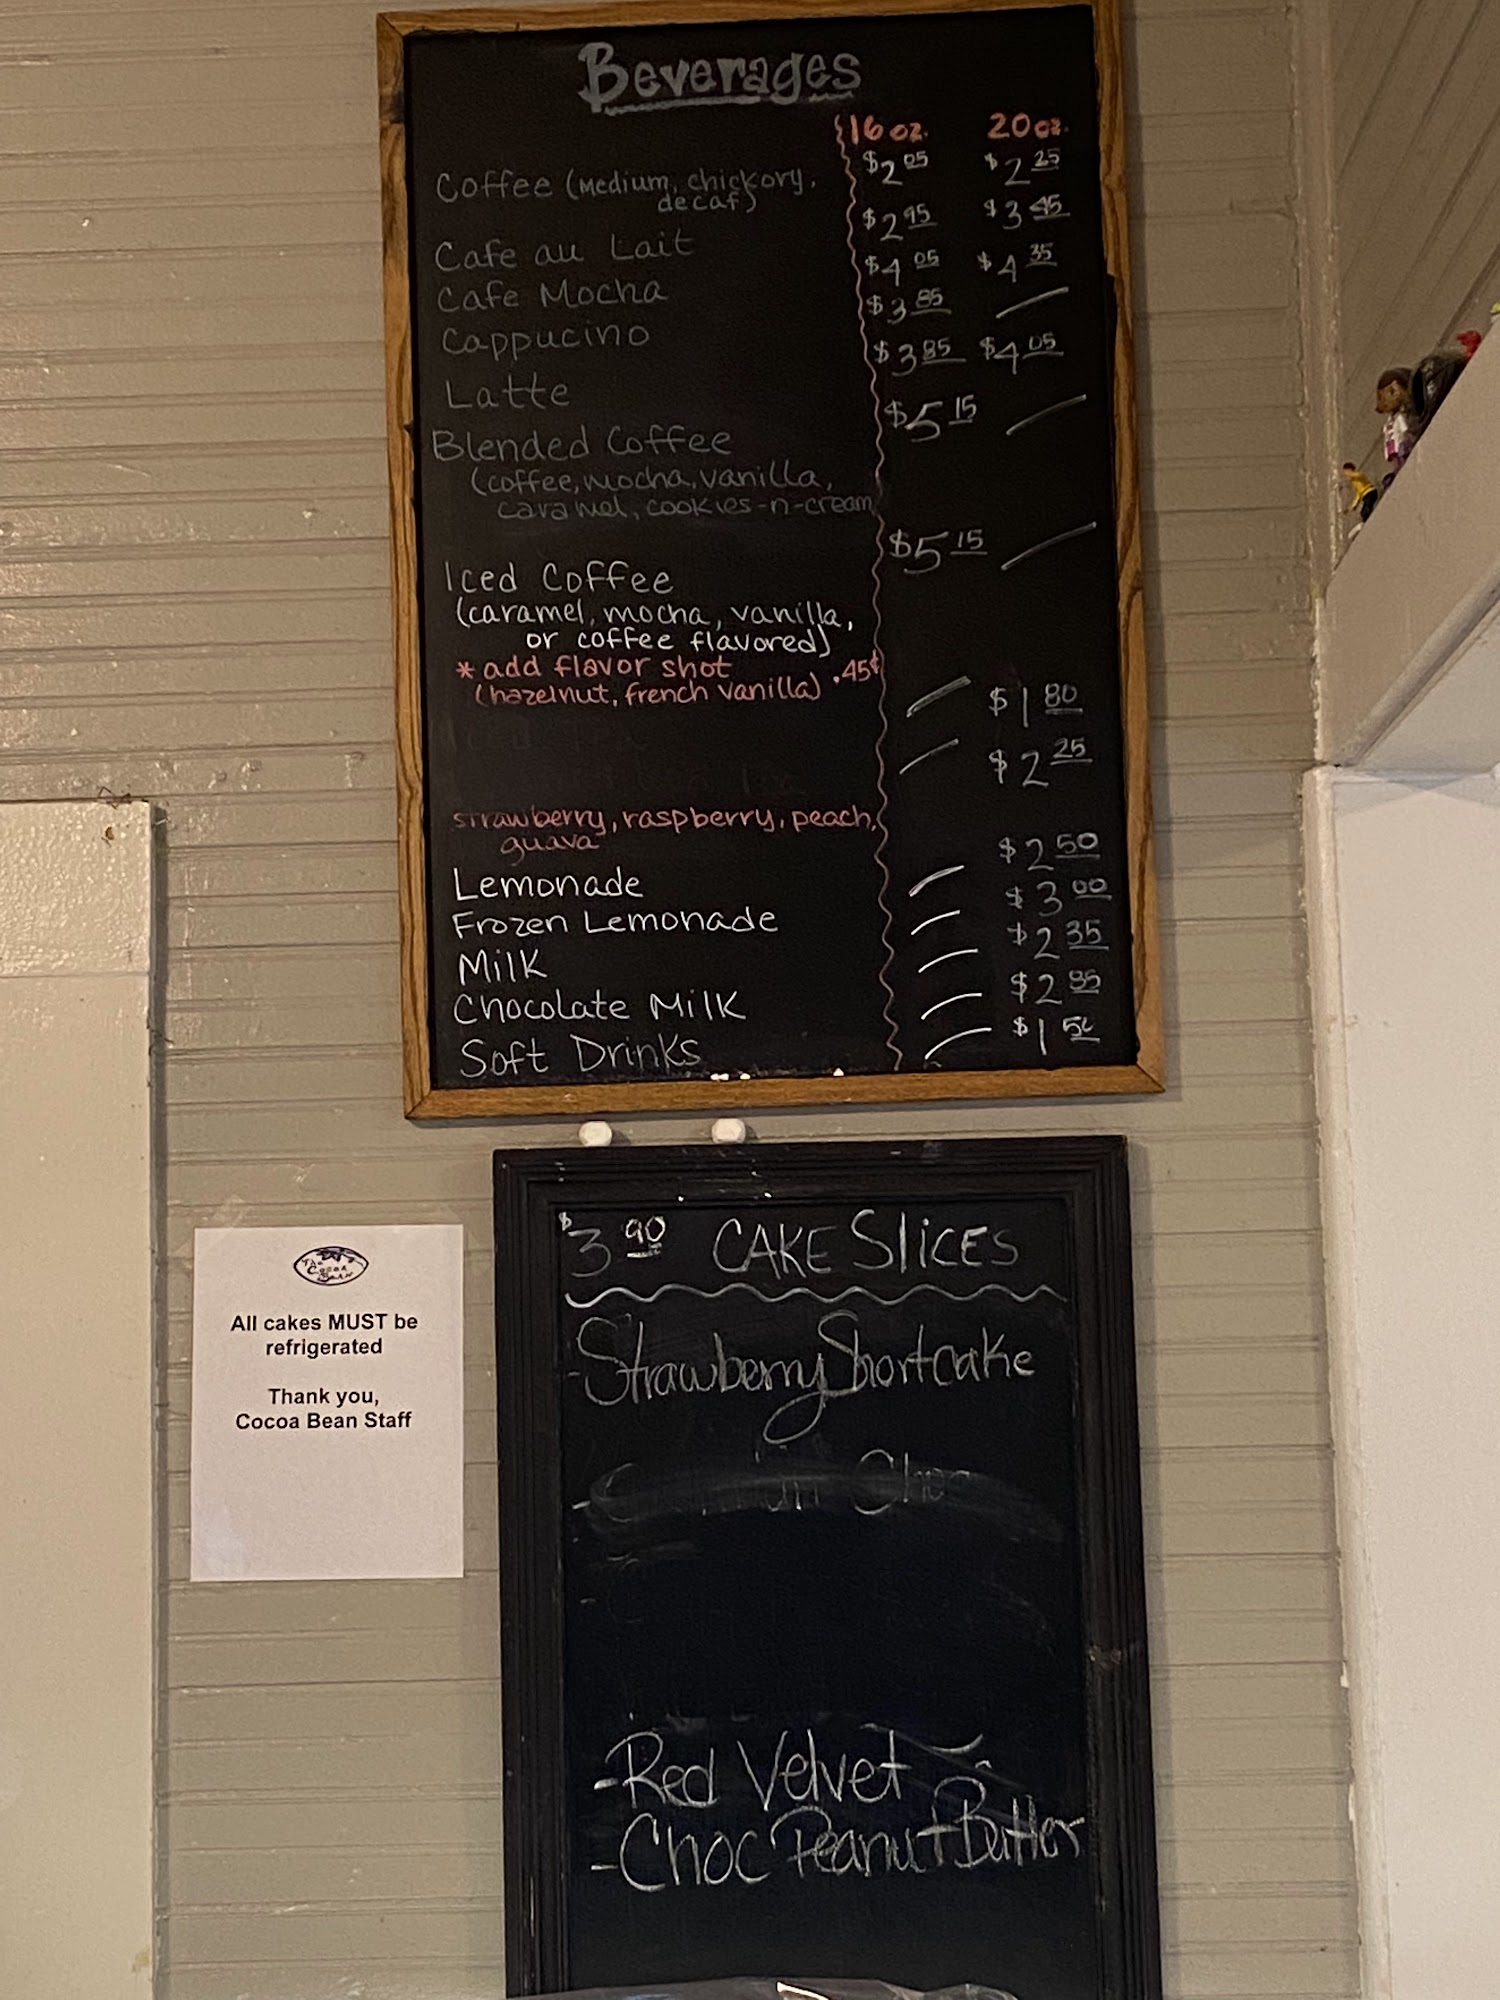 Beverages
16 oz. 20 oz.
Coffee (Medium, chickory, $2.05 $2.25
decaf)
Cafe au Lait $2.95 $3.45
Cafe Mocha $4.05 $4.35
Cappucino $3.85
Latte $3.85 $4.05
Blended Coffee $5.15
(coffee, mocha, vanilla,
caramel, cookies-n-cream
Iced Coffee $5.15
(caramel, mocha, vanilla,
or coffee flavored)
* add flavor shot .45¢
(hazelnut, french vanilla)
$1.80
$2.25
strawberry, raspberry, peach,
guava
Lemonade $2.50
Frozen Lemonade $3.00
Milk $2.35
Chocolate Milk
Soft Drinks
$3.90 CAKE SLICES
-Strawberry Shortcake
-Red Velvet
-Choc Peanut Butter
The
Cocoa
Bean
All cakes MUST be
refrigerated
Thank you,
Cocoa Bean Staff